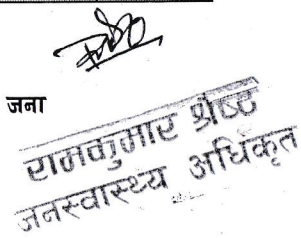 जना
रामकुमार श्रेष्ठ
जनस्वास्थ्य अधिकृत